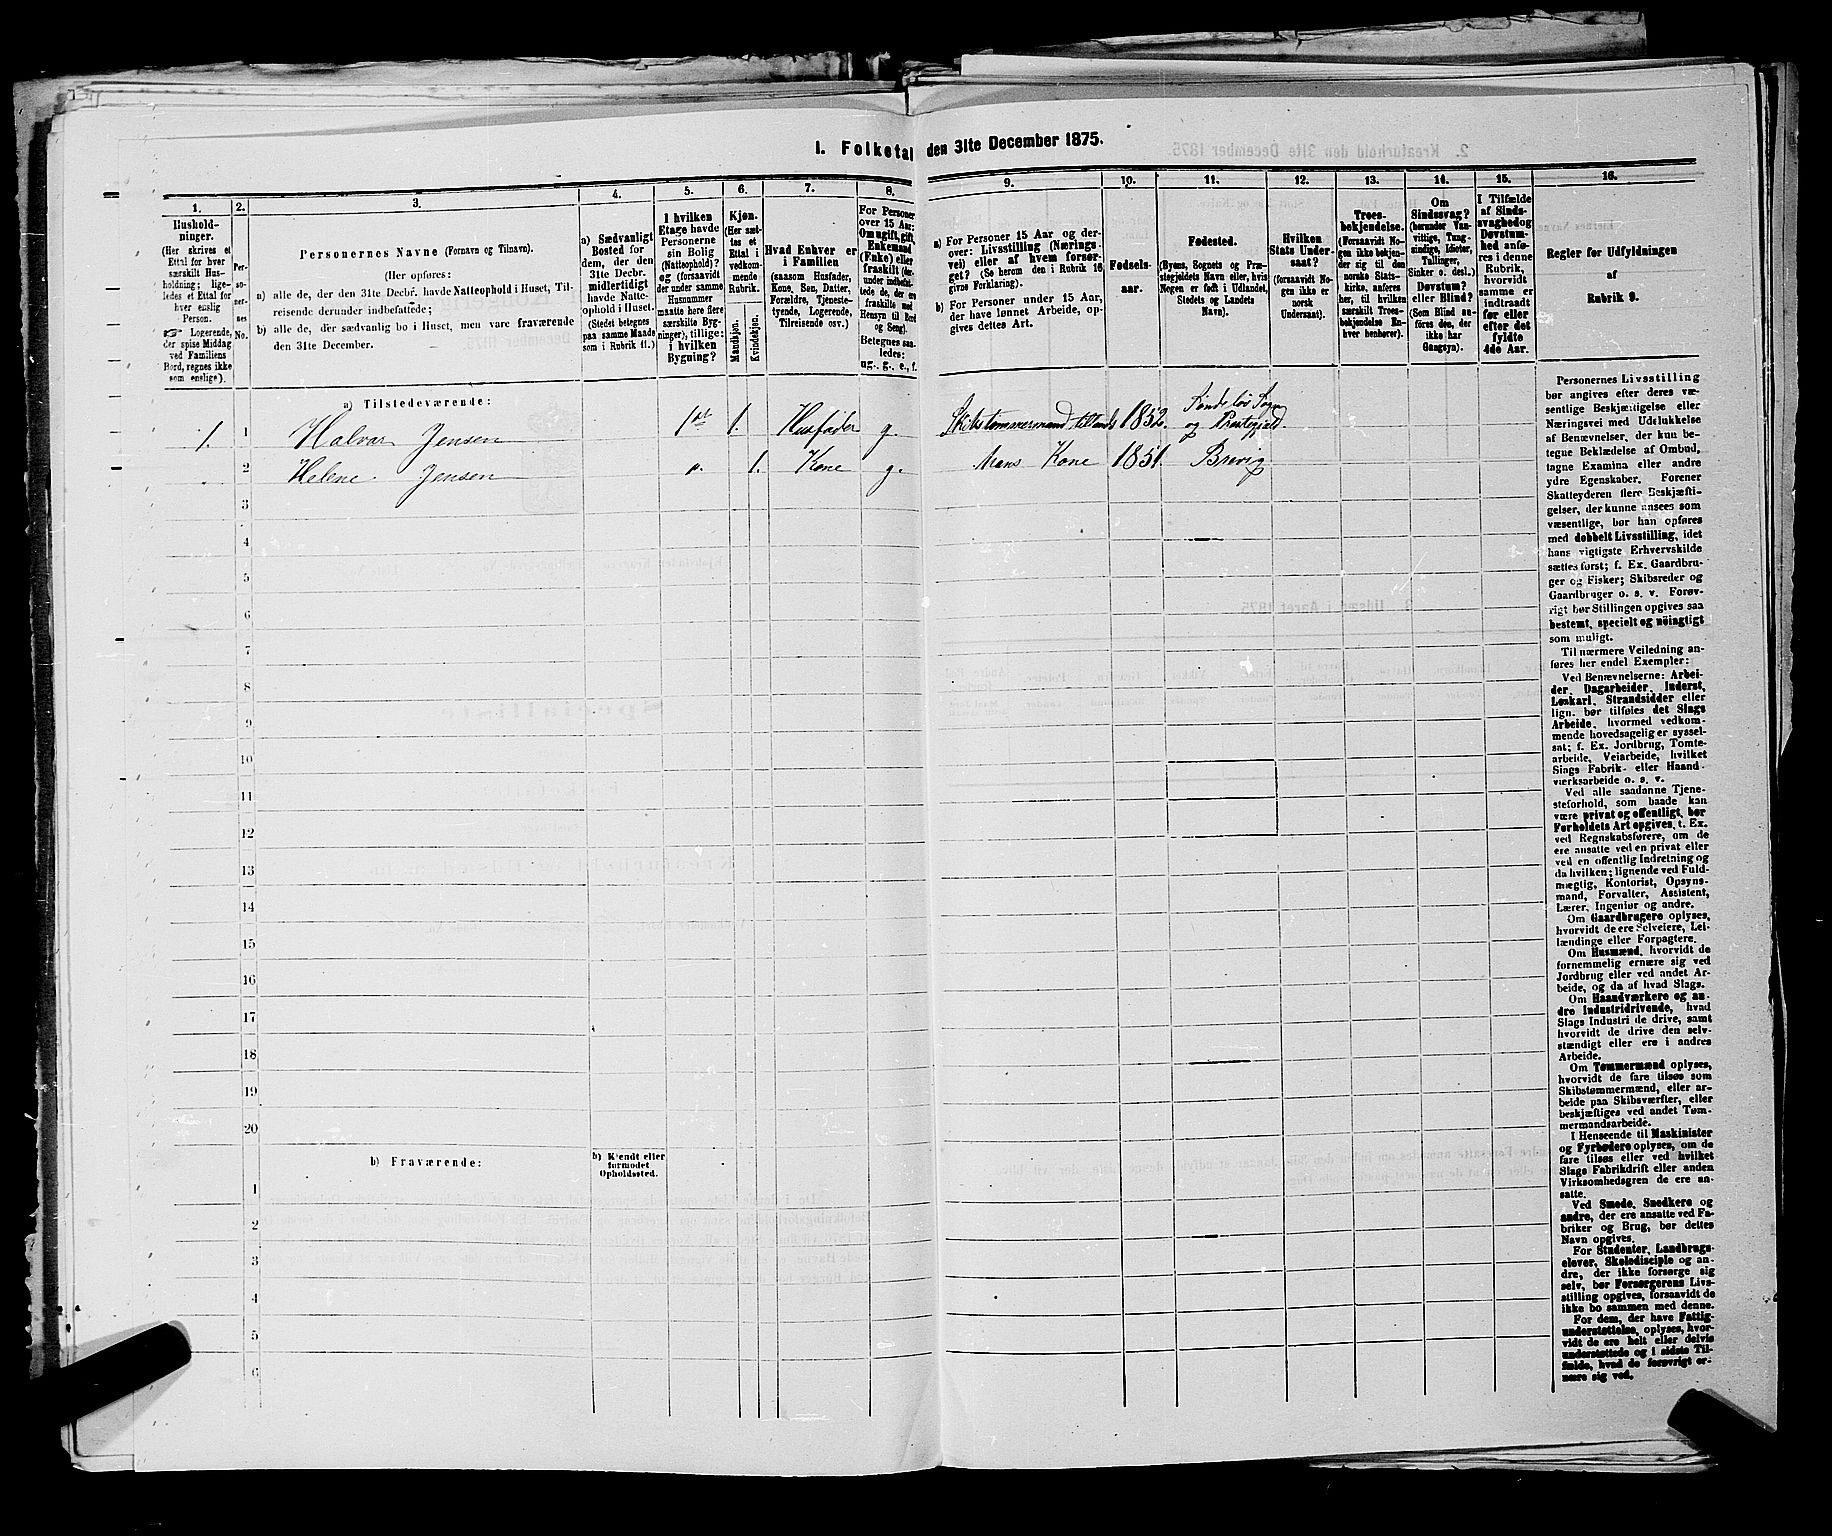 I. Folketal den 31te December 1875.
1.
2.
3.
4.
5.
6.
7.
8.
9.
10.
11.
12.
13.
14.
15.
16.
Hushold-
ninger.
(Her skrives et
Ettal for hver
særskilt Hus-
holdning; lige-
ledes et Ettal for
hver enslig
Person.
☞ Logerende,
der spise Middag
ved Familiens
Bord, regnes ikke
som enslige).
Per-
so-
ner-
nes
No.
Personernes Navne (Fornavn og Tilnavn).
(Her opføres:
a) alle de, der den 31te Decbr. havde Natteophold i Huset, Til-
reisende derunder indbefattede;
b) alle de, der sædvanlig bo i Huset, men vare fraværende
den 31te December.
a) Sædvanligt
Bosted for
dem, der den
31te Decbr.
midlertidigt
havde Natte-
ophold i Huset.
(Stedet betegnes
paa samme Maade
som i Rubrik 11.)
I hvilken
Etage havde
Personerne
sin Bolig
(Natteophold)?
(forsaavidt
der under samme
Husnummer
maatte høre flere
særskilte Byg-
ninger), tillige:
i hvilken
Bygning?
Kjøn.
(Her sæt-
tes et
Ettal i
vedkom-
mende
Rubrik.
Mandkjøn.
Kvindekjøn.
Hvad Enhver er
i Familien
(saasom Husfader,
Kone, Søn, Datter,
Forældre, Tjeneste-
tyende, Logerende,
Tilreisende osv.)
For Personer
over 15 Aar:
Om ugift, gift,
Enkemand
(Enke) eller
fraskilt (der-
under indbefat-
tede de, der ere
fraskilte med
Hensyn til Bord
og Seng).
Betegnes saa-
ledes:
ug., g., e., f.
a) For Personer 15 Aar og der-
over: Livsstilling (Nærings-
vei) eller af hvem forsør-
get? (Se herom den i Rubrik 16
givne Forklaring).
b) For Personer under 15 Aar,
der have lønnet Arbeide, op-
gives dettes Art.
Fødsels-
aar.
Fødested.
(Byens, Sognets og Præ-
stegjeldets Navn eller, hvis
Nogen er født i Udlandet,
Stedets og Landets
Navn).
Hvilken
Stats Under-
saat?
(forsaavidt No-
gen ikke er
norsk
Undersaat).
Troes-
bekjendelse.
(Forsaavidt No-
gen ikke bekjen-
der sig til den
norske Stats-
kirke, anføres
her, til hvilken
særskilt Troes-
bekjendelse En-
hver henhører).
Om
Sindssvag?
(herunder Van-
vittige, Tung-
sindige, Idioter,
Tullinger,
Sinker o. desl.)
Døvstum?
eller Blind?
(Som Blind an-
føres den, der
ikke har
Gangsyn).
I Tilfælde
af Sinds-
svaghed og
Døvstum-
hed anfø-
res i denne
Rubrik,
hvorvidt
samme er
indtraadt
før eller
efter det
fyldte
4de Aar.
Regler for Udfyldningen
af
Rubrik 9.
a) Tilstedeværende:
1. 1 Halvar Jensen 1st 1. Husfader g. Skibstømmermand tillands 1852. Søndeløv Sogn og Præstegjeld
2 Helene Jensen " 1. Kone g. Mans Kone 1851. Brevig
3
4
5
6
7
8
9
10
11
12
13
14
15
16
17
18
19
20
b) Fraværende:
b) Kjendt eller
formodet
Opholdssted.
1
2
3
4
5
6
Personernes Livsstilling
bør angives efter deres væ-
sentlige Beskjæftigelse eller
Næringsvei med Udelukkelse
af Benævnelser, der kun be-
tegne Beklædelse af Ombud,
tagne Examina eller andre
ydre Egenskaber. Forener
Skatteyderen flere Beskjæfti-
gelser, der kunne ansees som
væsentlige, bør han opføres
med dobbelt Livsstilling, idet
hans vigtigste Erhvervskilde
sættes først; f. Ex. Gaardbru-
ger og Fisker; Skibsreder og
Gaardbruger o. s. v. Forøv-
rigt bør Stillingen opgives saa
bestemt, specielt og nøiagtigt
som muligt.
Til nærmere Veiledning an-
føres her endel Exempler:
Ved Benævnelserne: Arbei-
der, Dagarbeider, Inderst,
Løskarl, Strandsidder eller
lign. bør tilføies det Slags
Arbeide, hvormed vedkom-
mende hovedsagelig er syssel-
sat; f. Ex. Jordbrug, Tomte-
arbeide, Veiarbeide, hvilket
Slags Fabrik- eller Haand-
værksarbeide o. s. v.
Ved alle saadanne Tjene-
steforhold, som baade kan
være privat og offentligt, bør
Forholdets Art opgives, t. Ex.
ved Regnskabsførere, om de
ere ansatte ved en privat eller
ved en offentlig Indretning og
da hvilken; lignende ved Fuld-
mægtig, Kontorist, Opsyns-
mand, Forvalter, Assistent,
Lærer, Ingeniør og andre.
Om Gaardbrugere oplyses,
hvorvidt de ere Selveiere, Lei-
lændinge eller Forpagtere.
Om Husmænd, hvorvidt de
fornemmelig ernære sig ved
Jordbrug eller ved andet Ar-
beide, og da af hvad Slags.
Om Haandværkere og an-
dre Industridrivende, hvad
Slags Industri de drive, samt
hvorvidt de drive den selv-
stændigt eller ere i andres
Arbeide.
Om Tømmermænd oplyses,
hvorvidt de fare tilsøs som
Skibstømmermænd, eller ar-
beide paa Skibsværfter, eller
beskjæftiges ved andet Tøm-
mermandsarbeide.
I Henseende til Maskinister
og Fyrbødere oplyses, om de
fare tilsøs eller ved hvilket
Slags Fabrikdrift eller anden
Virksomhedsgren de ere an-
satte.
Ved Smede, Snedkere og
andre, der ere ansatte ved Fa-
briker og Brug, bør dettes
Navn opgives.
For Studenter, Landbrugs-
elever, Skoledisciple og an-
dre, der ikke forsørge sig
selv, bør Forsørgerens Livs-
stilling opgives, forsaavidt de
ikke bo sammen med denne.
For dem, der have Fattig-
understøttelse, oplyses, hvor-
vidt de ere helt eller delvis
understøttede og i sidste Til-
fælde, hvad de forøvrigt er-
nære sig ved.